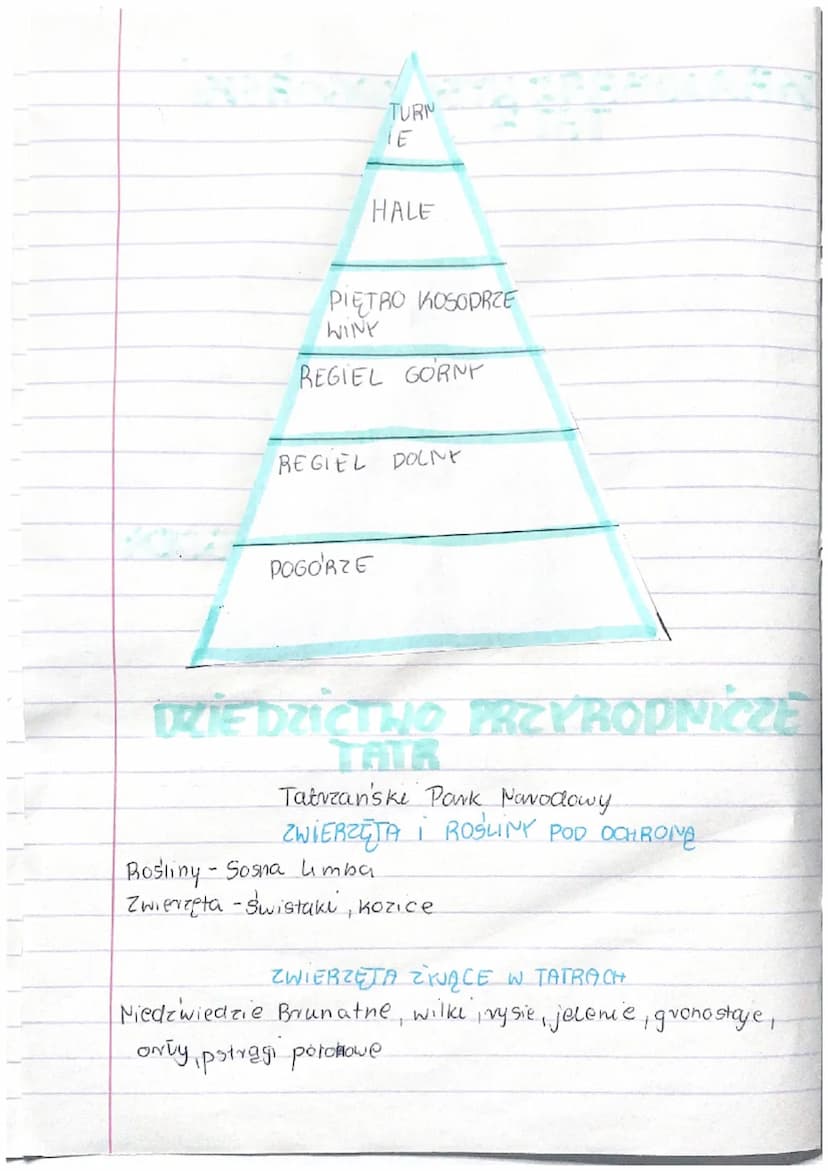 TURN
IE
HALE
PIĘTRO KOSODRZE
WINY
REGIEL GÓRNY
REGIEL DOLNY
POGÓRZE
DZIEDZICTWO PRZYRODNICZE
TATR
Tatrzański Park Narodowy
ZWIERZĘTA I ROŚLINY POD OCHRONĄ
Rośliny - Sosna limba
Zwierzęta - świstaki, kozice
ZWIERZĘTA ŻYJĄCE W TATRACH
Niedźwiedzie Brunatne, wilki, rysie, jelenie, gronostaje,
orły, pstrągi potokowe